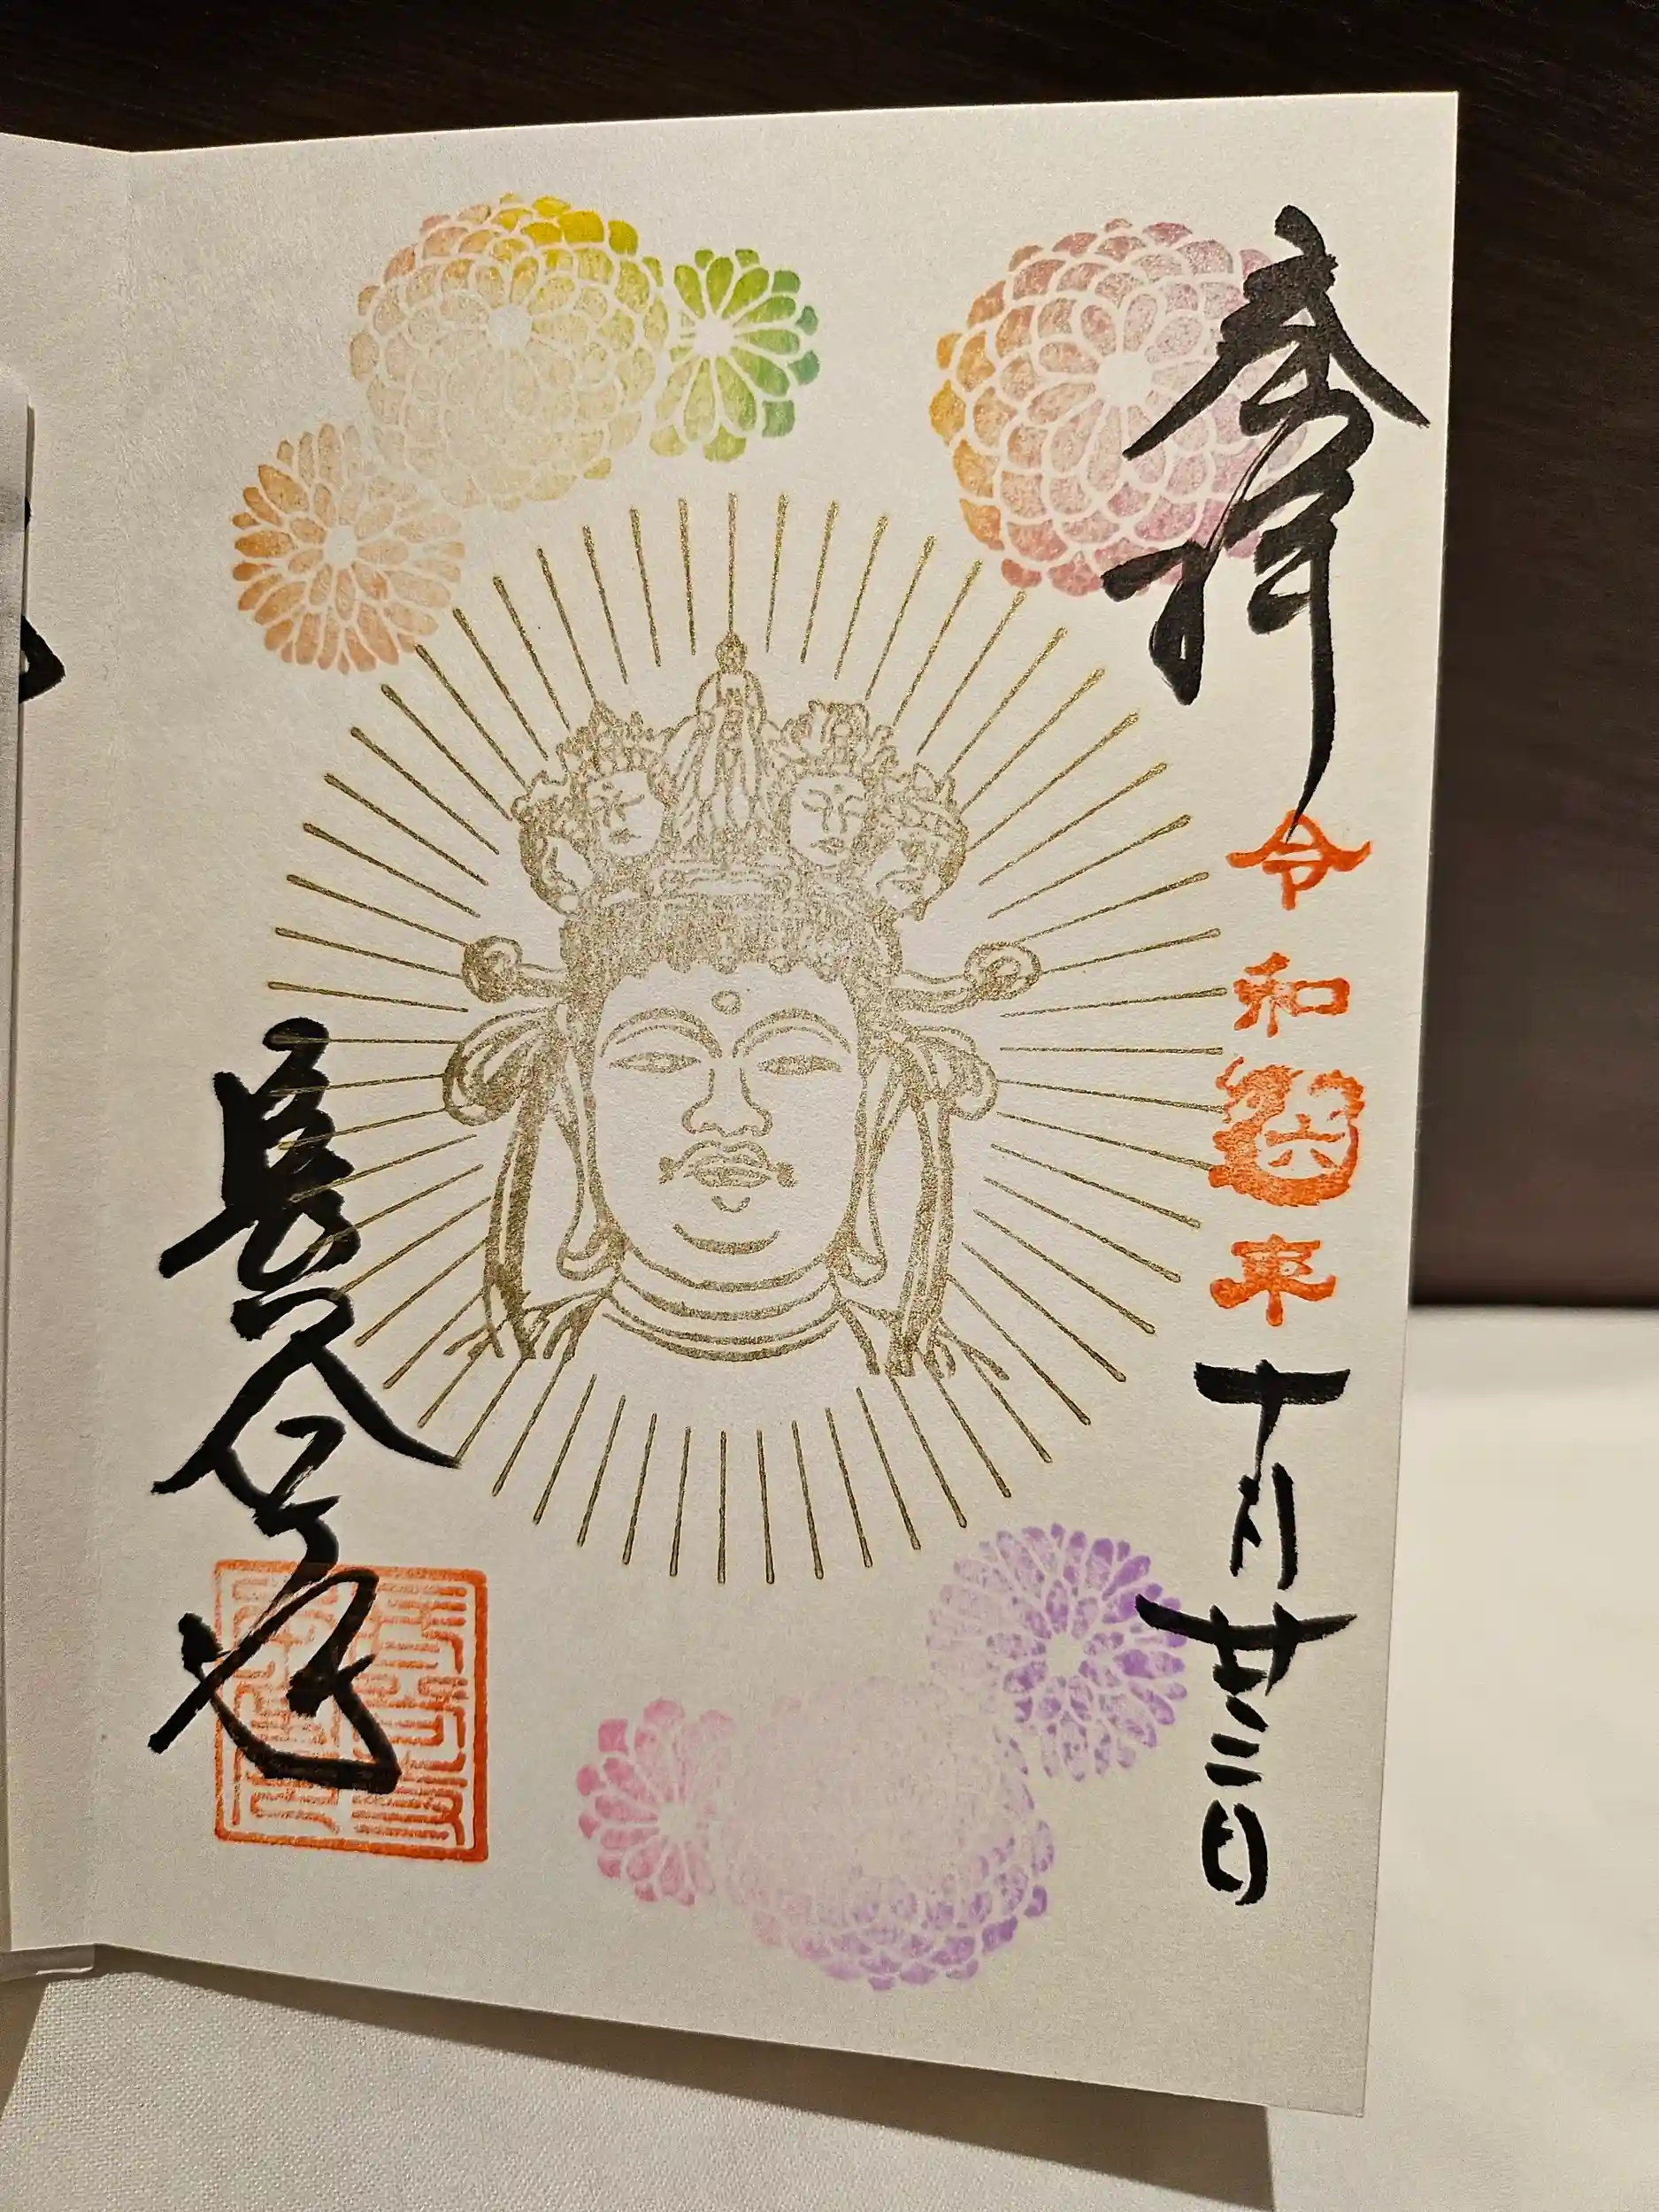 奉拝
令和六年
十月廿三日
長谷寺